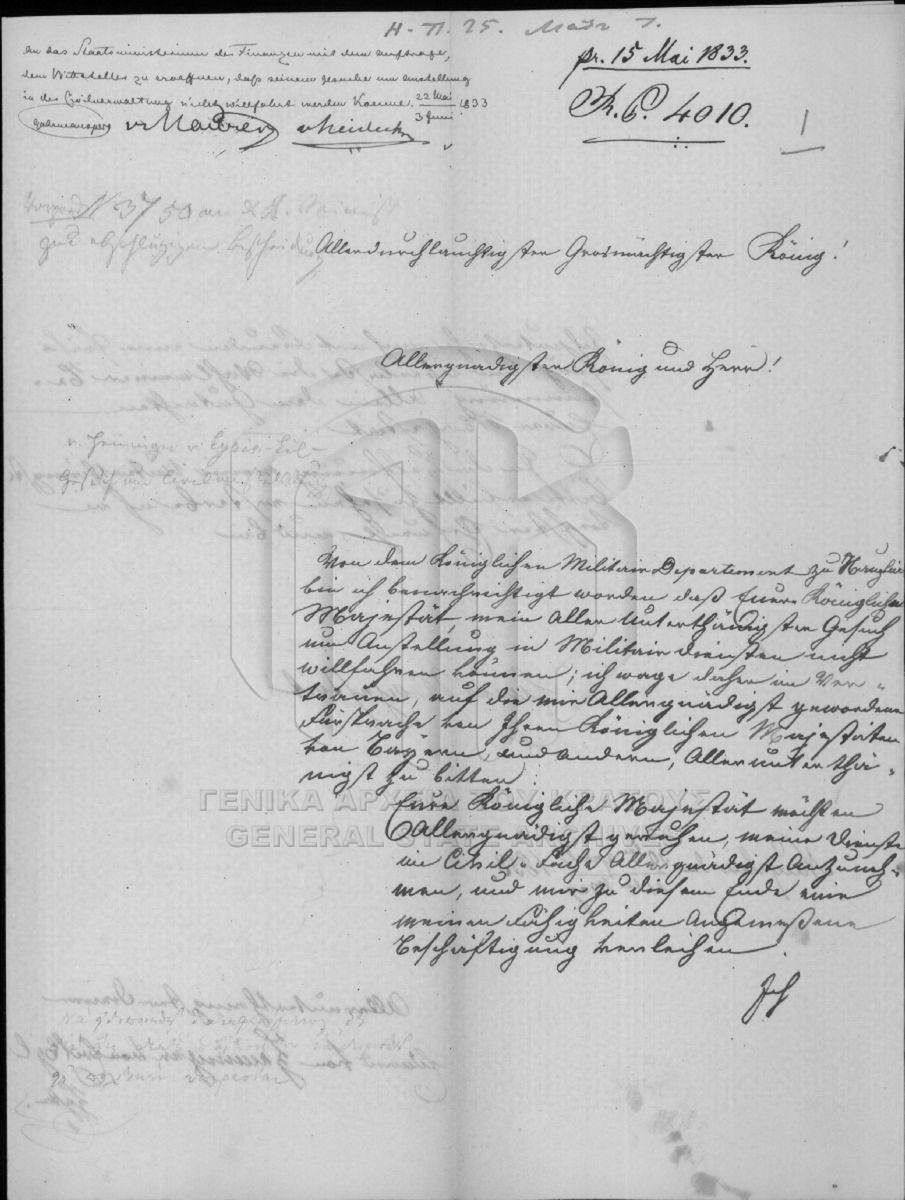 H. Π. 25.
pr. 15 Mai 1833.
N. E. 4010.
1
An das Staatsministerium der Finanzen mit dem Auftrage,
dem Bittsteller zu eroeffnen, dass seinem Gesuche um Anstellung
in der Civilverwaltung nicht willfahrt werden koenne. 22 Mai / 3 Juni 1833
Armansperg v Maurer v Heideck
N 3750 an d. K. Minist
zur abschlägigen Bescheidung
Allerdurchlauchtigster Grosmächtigster König!
Allergnädigster König und Herr!
Gesuch um Civil
Von dem Königlichen Militair Departement zu Nauplia
bin ich benachrichtigt worden daß Eure Königliche
Majestät, mein Aller Unterthänigstes Gesuch
um Anstellung in Militair diensten nicht
willfahren können; ich wage daher im Ver-
trauen, auf die mir Allergnädigst gewordene
Fürsprache von Ihren Königlichen Majestäten
von Bayern, und andern, Allerunterthä-
nigst zu bitten
Eure Königliche Majestät möchten
Allergnädigst geruhen, meine Dienste
im Civil-Fache Allergnädigst Anzuneh-
men, und mir zu diesem Ende eine
meinen Fähigkeiten Angemeßene
Beschäftigung verleihen.
Ich
ΓΕΝΙΚΑ ΑΡΧΕΙΑ ΤΟΥ ΚΡΑΤΟΥΣ
GENERAL STATE ARCHIVES